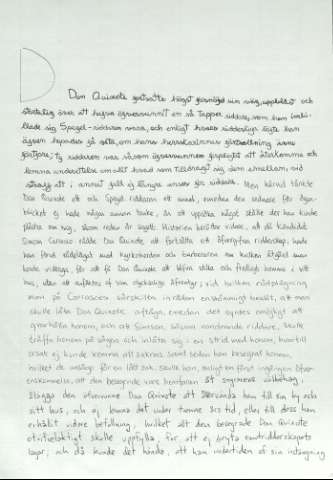 Don Quixote fortsatte högst förnöjd sin väg, upplifvad och
stolt öfver att hafva öfvervunnit en så tapper riddare, som han inbil-
lade sig Spegel-riddaren vara, och enligt hvars ridderliga löfte han
ägnade hoppades få veta, om hans herskarinnas förtrollning ännu
fortfore; ty riddaren var såsom öfvervunnen förpligtad att återkomma och
lemna underrättelse om allt hvad som tilldragit sig dem emellan, vid
straff att i annat fall ej längre anses för riddare. Men härvid tänkte
Don Quixote ett och Spegel-riddaren ett annat, emedan den sednare för ögon-
blicket ej hade några annan tanke, än att uppsöka något ställe der han kunde
plåstra om sig, såsom redan är sagdt. Historien berättar vidare, att då Kandidat
Simson Carrasco rådde Don Quixote att fortsätta sitt öfvergifna ridderskap, hade
han förut rådplägat med Kyrkoherden och barberaren om hvilken åtgärd man
borde vidtaga, för att få Don Quixote att blifva stilla och fredligt hemma i sitt
hus, utan att oroas af sina olyckliga äfventyr; vid hvilken rådplägning
man på Carrascos särskilta inrådan enhälligt beslöt, att man
skulle låta Don Quixote aftåga, emedan det syntes omöjligt att
qvarhålla honom, och att Simson, såsom vandrande riddare, skulle
träffa honom på vägen och inlåta sig i en strid med honom, hvartill
orsak ej kunde komma att saknas samt sedan han besegrat honom,
hvilket de ansågo för en lätt sak, skulle han, enligt en förut ingången öfver-
enskommelse, att den besegrade vore hemfallen åt segrarens välbehag,
ålägga den öfvervunne Don Quixote att återvända hem till sin by och
sitt hus, och ej lemna det under tvenne års tid, eller till dess han
erhållit vidare befallning, hvilket allt den besegrade Don Quixote
otvifvelaktigt skulle uppfylla, för att ej bryta emot ridderskapets
lagar; och då kunde det hända, att han under tiden af sin intagning